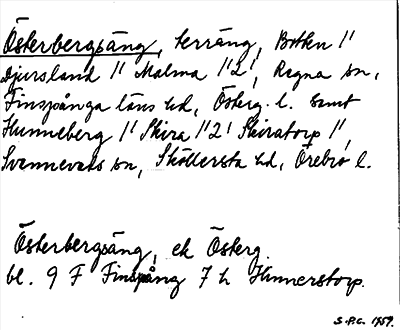 Österbergsäng, terräng, Botten 1/1
Djursland 1/1 Malma 1/2, Regna sn,
Finspånga läns hd, Österg. l. samt
Hunneberg 1/1 Skira 1/2 Skiratorp 1/1,
Svennevads sn, Sköllersta hd, Örebro l.
Österbergsäng, ek Österg.
bl. 9 F Finspång 7 h Hunnerstorp.
S.P.G. 1959.